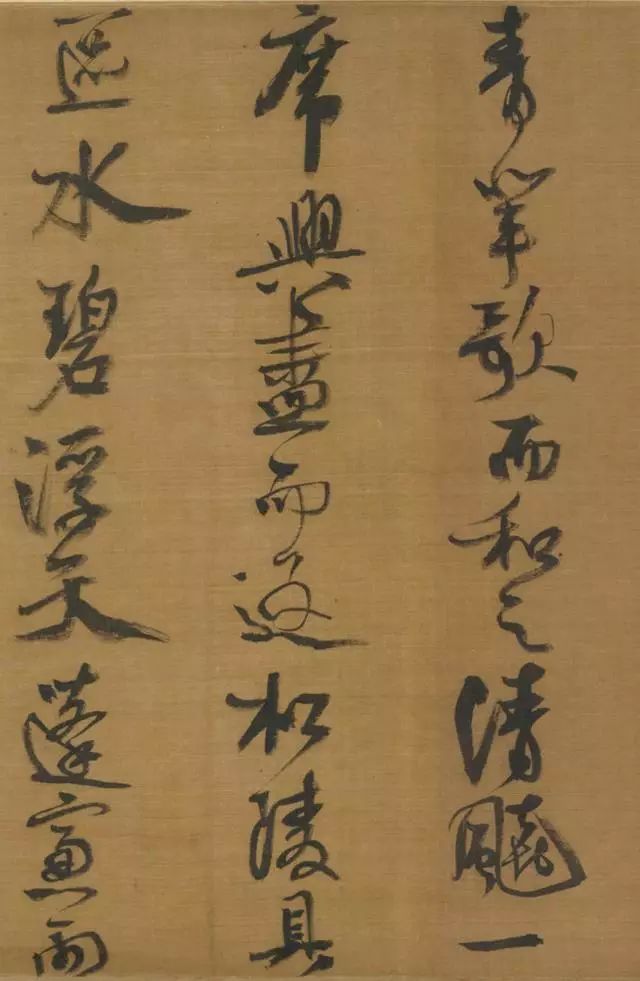 青歌而和之清飈一
席興盡而返松陵具
區水碧浮天蓬窗雨